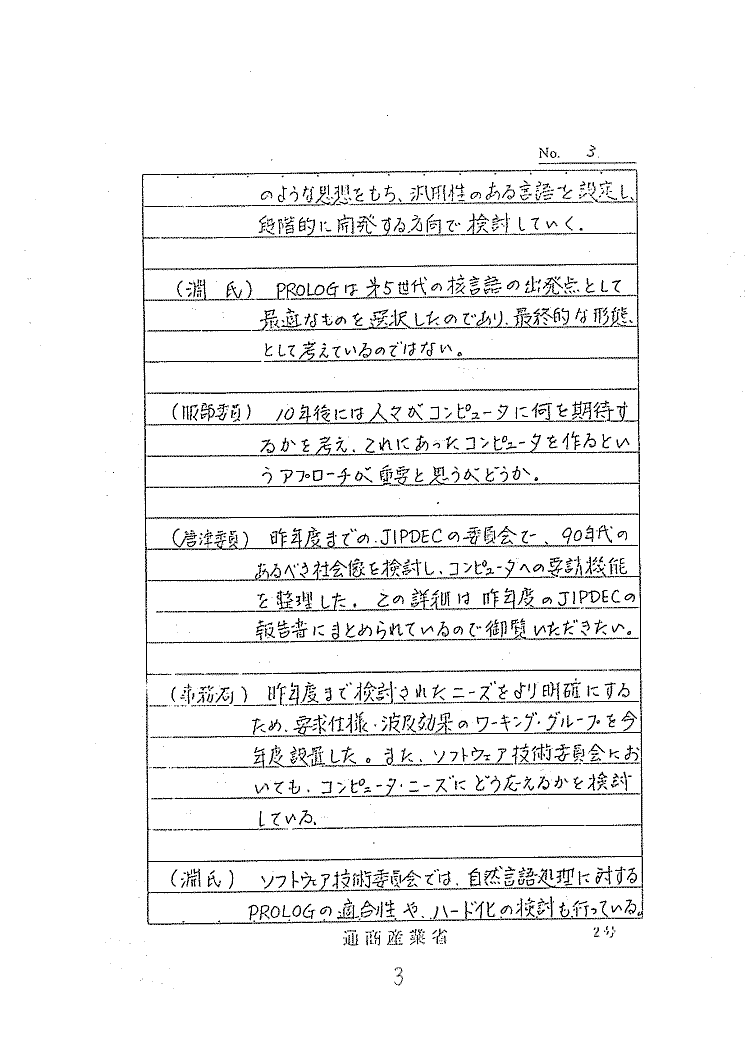 No. 3
のような思想をもち、汎用性のある言語を設定し、
段階的に開発する方向で検討していく。
(淵 氏) PROLOGは第5世代の核言語の出発点として
最適なものを選択したのであり、最終的な形態
として考えているのではない。
(服部委員) 10年後には人々がコンピュータに何を期待す
るかを考え、これにあったコンピュータを作るとい
うアプローチが重要と思うがどうか。
(唐津委員) 昨年度までのJIPDECの委員会で、90年代の
あるべき社会像を検討し、コンピュータへの要請機能
を整理した。この詳細は昨年度のJIPDECの
報告書にまとめられているので御覧いただきたい。
(事務局) 昨年度まで検討されたニーズをより明確にする
ため、要求仕様・波及効果のワーキング・グループを今
年度設置した。また、ソフトウェア技術委員会にお
いても、コンピュータ・ニーズにどう応えるかを検討
している。
(淵氏) ソフトウェア技術委員会では、自然言語処理に対する
PROLOGの適合性や、ハード化の検討も行っている。
通商産業省
2号
3